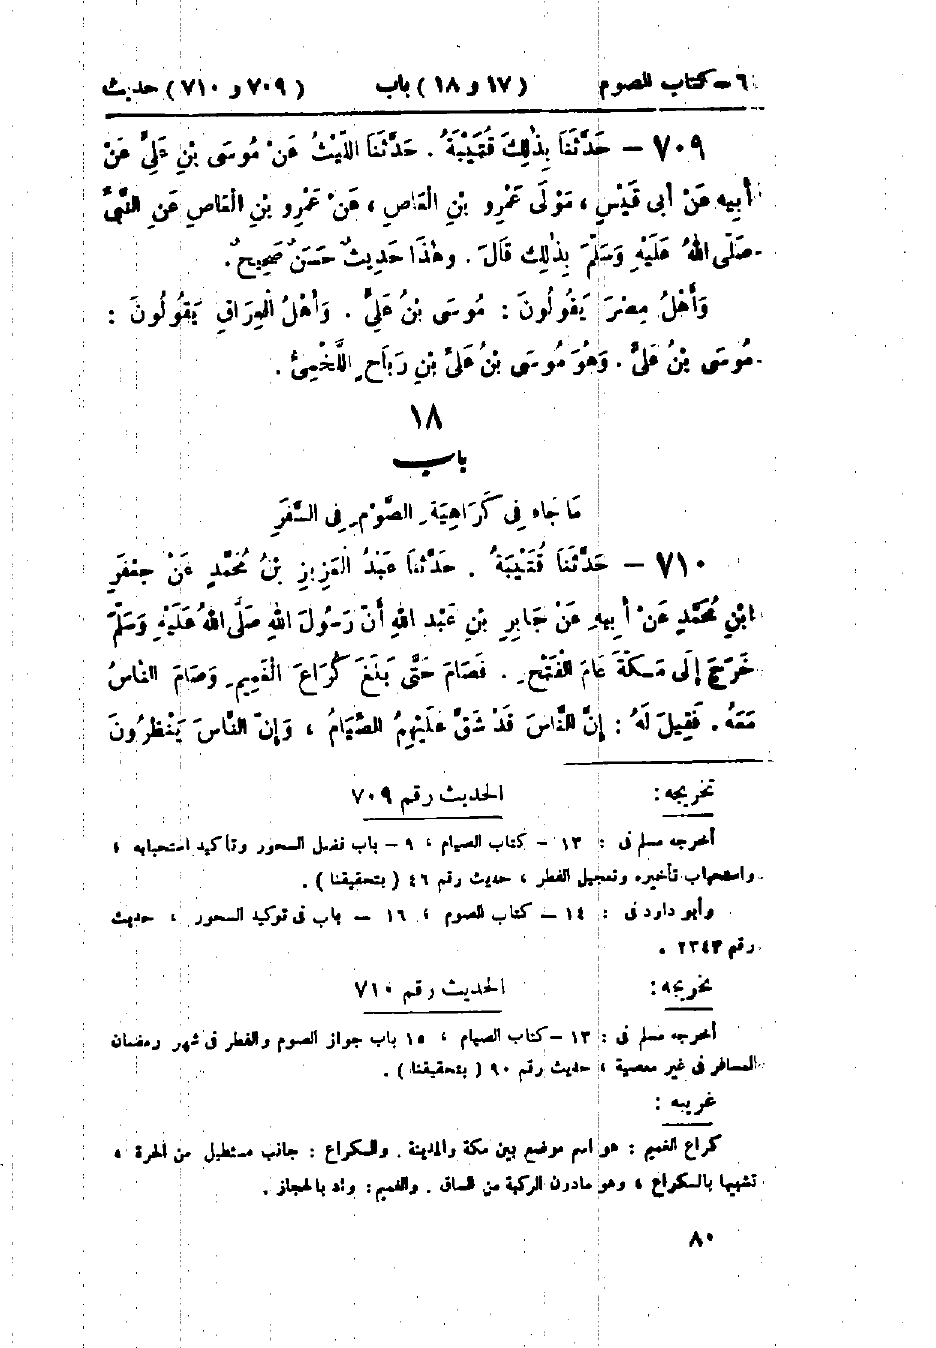 ٦ – كتاب الصوم (١٧ و ١٨) باب (٧٠٩ و ٧١٠) حديث
٧٠٩ – حَدَّثَنَا بِذٰلِكَ قُتَيْبَةُ . حَدَّثَنَا اللَّيْثُ عَنْ مُوسَى بْنِ عَلِيٍّ عَنْ
أَبِيهِ عَنْ أَبِى قَيْسٍ ، مَوْلَى عَمْرِو بْنِ الْعَاصِ ، عَنْ عَمْرِو بْنِ الْعَاصِ عَنِ النَّبِيِّ
صَلَّى اللهُ عَلَيْهِ وَسَلَّمَ بِذٰلِكَ قَالَ . وهٰذَا حَدِيثٌ حَسَنٌ صَحِيحٌ .
وَأَهْلُ مِصْرَ يَقُولُونَ : مُوسَى بْنُ عَلِيٍّ . وَأَهْلُ الْعِرَاقِ يَقُولُونَ :
مُوسَى بْنُ عَلِيٍّ . وَهُوَ مُوسَى بْنُ عَلِيِّ بْنِ رَبَاحٍ اللَّخْمِيُّ .
١٨
باب
مَا جَاءَ فِي كَرَاهِيَةِ الصَّوْمِ فِي السَّفَرِ
٧١٠ – حَدَّثَنَا قُتَيْبَةُ . حَدَّثَنَا عَبْدُ الْعَزِيزِ بْنُ مُحَمَّدٍ عَنْ جَعْفَرِ
ابْنِ مُحَمَّدٍ عَنْ أَبِيهِ عَنْ جَابِرِ بْنِ عَبْدِ اللهِ أَنَّ رَسُولَ اللهِ صَلَّى اللهُ عَلَيْهِ وَسَلَّمَ
خَرَجَ إِلَى مَكَّةَ عَامَ الْفَتْحِ . فَصَامَ حَتَّى بَلَغَ كُرَاعَ الْغَمِيمِ وَصَامَ النَّاسُ
مَعَهُ . فَقِيلَ لَهُ : إِنَّ النَّاسَ قَدْ شَقَّ عَلَيْهِمُ الصِّيَامُ ، وَإِنَّ النَّاسَ يَنْظُرُونَ
تخريجه : الحديث رقم ٧٠٩
أخرجه مسلم فى : ١٣ – كتاب الصيام ، ٩ – باب فضل السحور وتأكيد استحبابه ،
واستحباب تأخيره وتعجيل الفطر ، حديث رقم ٤٦ (بتحقيقنا) .
وأبو داود فى : ١٤ – كتاب الصوم ، ١٦ – باب فى توكيد السحور ، حديث
رقم ٢٣٤٣ .
تخريجه : الحديث رقم ٧١٠
أخرجه مسلم فى : ١٣ – كتاب الصيام ، ١٥ باب جواز الصوم والفطر فى شهر رمضان
المسافر فى غير معصية ، حديث رقم ٩٠ (بتحقيقنا) .
غريبه :
كراع الغميم : هو اسم موضع بين مكة والمدينة . والكراع : جانب مستطيل من الحرة ،
تشبيها بالكراع ، وهو مادون الركبة من الساق . والغميم : واد بالحجاز .
٨٠